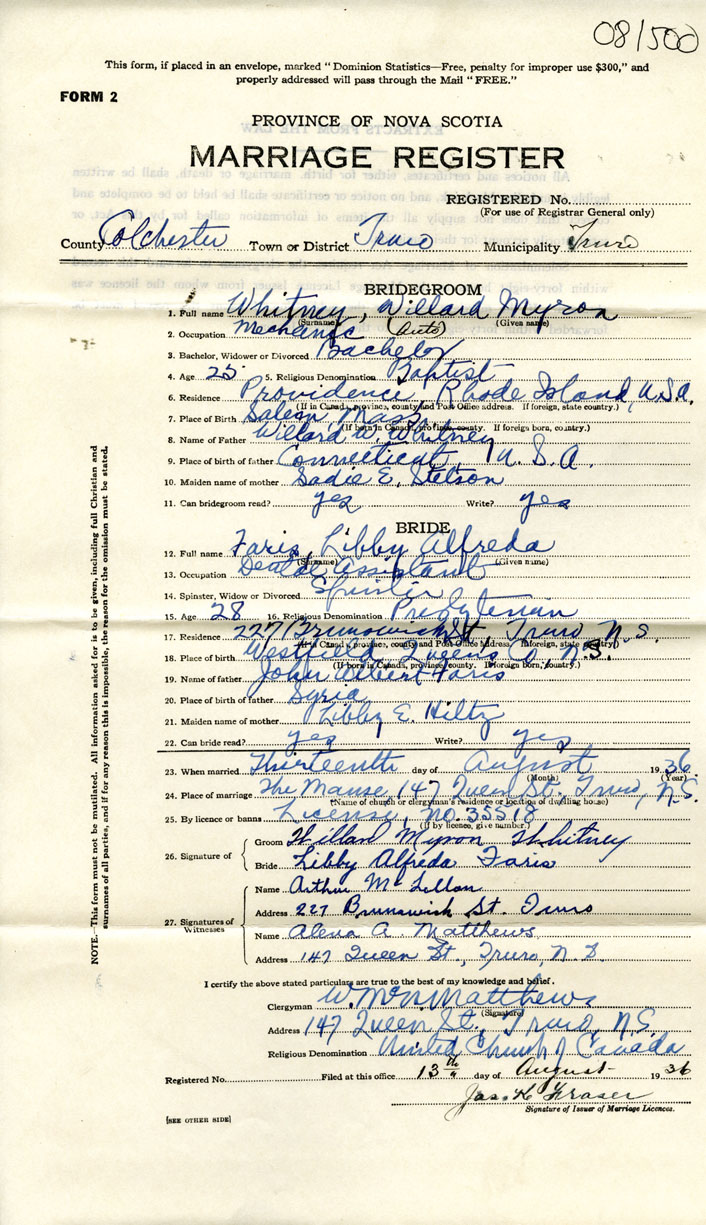 08/500
This form, if placed in an envelope, marked "Dominion Statistics—Free, penalty for improper use $300," and
properly addressed will pass through the Mail "FREE."
FORM 2
PROVINCE OF NOVA SCOTIA
MARRIAGE REGISTER
REGISTERED No.
(For use of Registrar General only)
County Colchester Town or District Truro Municipality Truro
BRIDEGROOM
1. Full name Whitney, Willard Myron
(Surname) (Given name)
2. Occupation Mechanic (Auto)
3. Bachelor, Widower or Divorced Bachelor
4. Age 25 5. Religious Denomination Baptist
6. Residence Providence, Rhode Island, U.S.A.
(If in Canada, province, county and Post Office address. If foreign, state country.)
7. Place of Birth Salem, Mass.
(If born in Canada, province, county. If foreign born, country.)
8. Name of Father Willard W. Whitney
9. Place of birth of father Connecticut, U.S.A.
10. Maiden name of mother Sadie E. Stetson
11. Can bridegroom read? yes Write? yes
BRIDE
12. Full name Faris, Libby Alfreda
(Surname) (Given name)
13. Occupation Dental Assistant
14. Spinster, Widow or Divorced Spinster
15. Age 28 16. Religious Denomination Presbyterian
17. Residence 227 Brunswick St., Truro N.S.
(If in Canada, province, county and Post Office Address. If foreign, state country)
18. Place of birth Westfield, Queens Co., N.S.
(If born in Canada, province, county. If foreign born, country.)
19. Name of father John Albert Faris
20. Place of birth of father Syria
21. Maiden name of mother Libby E. Hiltz
22. Can bride read? yes Write? yes
23. When married Thirteenth day of August 1936
(Month) (Year)
24. Place of marriage The Manse, 147 Queen St., Truro, N.S.
(Name of church or clergyman's residence or location of dwelling house)
25. By licence or banns License, No. 35518
(If by licence, give number.)
26. Signature of Groom Willard Myron Whitney
Bride Libby Alfreda Faris
27. Signatures of Witnesses Name Arthur McLellan
Address 227 Brunswick St. Truro
Name Alena A. Matthews
Address 147 Queen St., Truro, N.S.
I certify the above stated particulars are true to the best of my knowledge and belief.
Clergyman Matthews
(Signature)
Address 147 Queen St., Truro, N.S.
Religious Denomination United Church of Canada
Registered No. Filed at this office 13th day of August 1936
Jas. H. Fraser
Signature of Issuer of Marriage Licences.
[SEE OTHER SIDE]
NOTE.—This form must not be mutilated. All information asked for is to be given, including full Christian and
surnames of all parties, and if for any reason this is impossible, the reason for the omission must be stated.